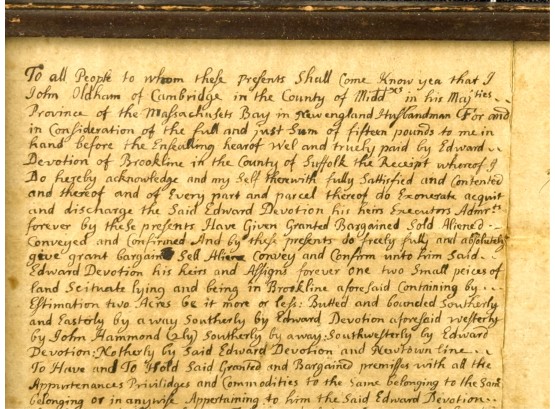 To all People to whom these presents Shall Come Know yea that I
John Oldham of Cambridge in the County of Midd.sx in his Maj.ties
Province of the Massachusets Bay in New england Husbandman For and
in Consideration of the full and just Sum of fifteen pounds to me in
hand before the Ensealing hearof Wel and truely paid by Edward
Devotion of Brookline in the County of Suffolk the Receipt whereof I
Do hereby acknowledge and my Self therewith fully Sattisfied and Contented
and thereof and of Every part and parcel thereof do Exonerate acquit
and discharge the Said Edward Devotion his heirs Executrs Admrs
forever by these presents Have Given Granted Bargained Sold Aliened
Conveyed and Confirmed And by these presents do freely fully and absolutely
give grant bargain Sell Aliene Convey and Confirm unto him Said
Edward Devotion his heirs and Assigns forever one two Small peices of
land Scituate lying and being in Brookline aforesaid Containing by
Estimation two Acres be it more or less: Butted and bounded Southerly
and Easterly by a way Southerly by Edward Devotion aforesaid westerly
by John Hammond (2ly) Southerly by a way: Southwesterly by Edward
Devotion: Notherly by Said Edward Devotion and Newtown line
To Have and To Hold Said Granted and Bargained premisses with all the
Appurtenances Priviliges and Commodities to the Same belonging to the Same
belonging or in anywise Appertaining to him the Said Edward Devotion